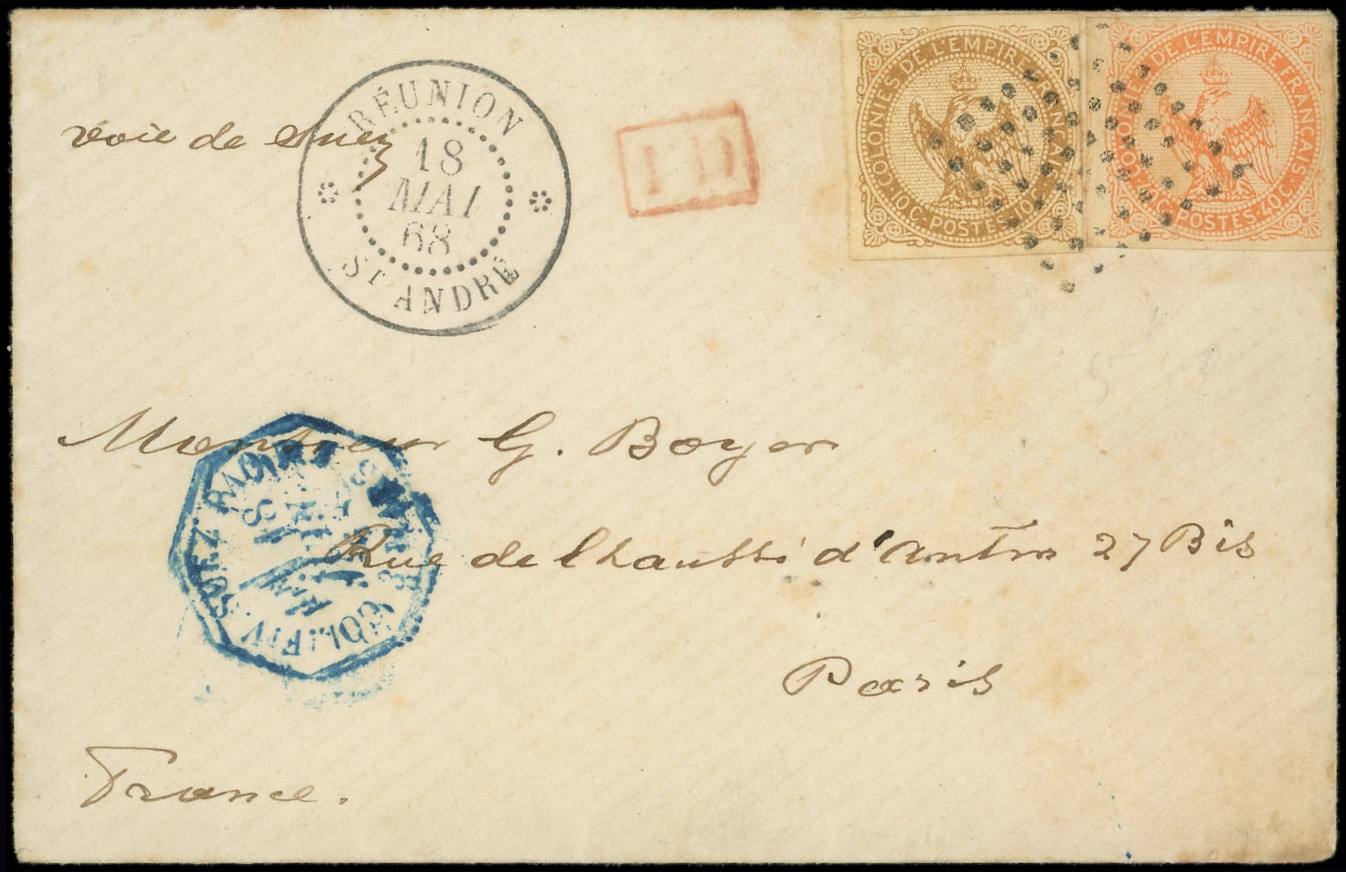 COLONIES DE L'EMPIRE FRANÇAIS
10 C. POSTES 10 C.
COLONIES DE L'EMPIRE FRANÇAIS.
40 C. POSTES 40 C.
voie de Suez
RÉUNION
18
MAI
68
ST ANDRÉ
PD
Monsieur G. Boyer
Rue de l Chaussé d'Antin 27 Bis
Paris
France.
SUEZ
COL. FR. V.